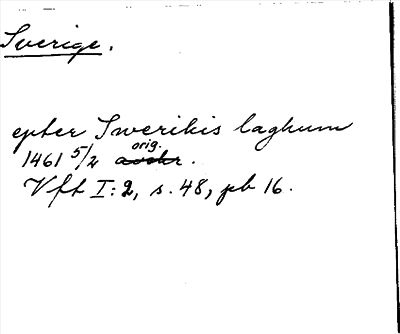 Sverige.
epter Swerikis laghum
1461 5/2 avskr. orig.
Vft I:2, s. 48, pb 16.